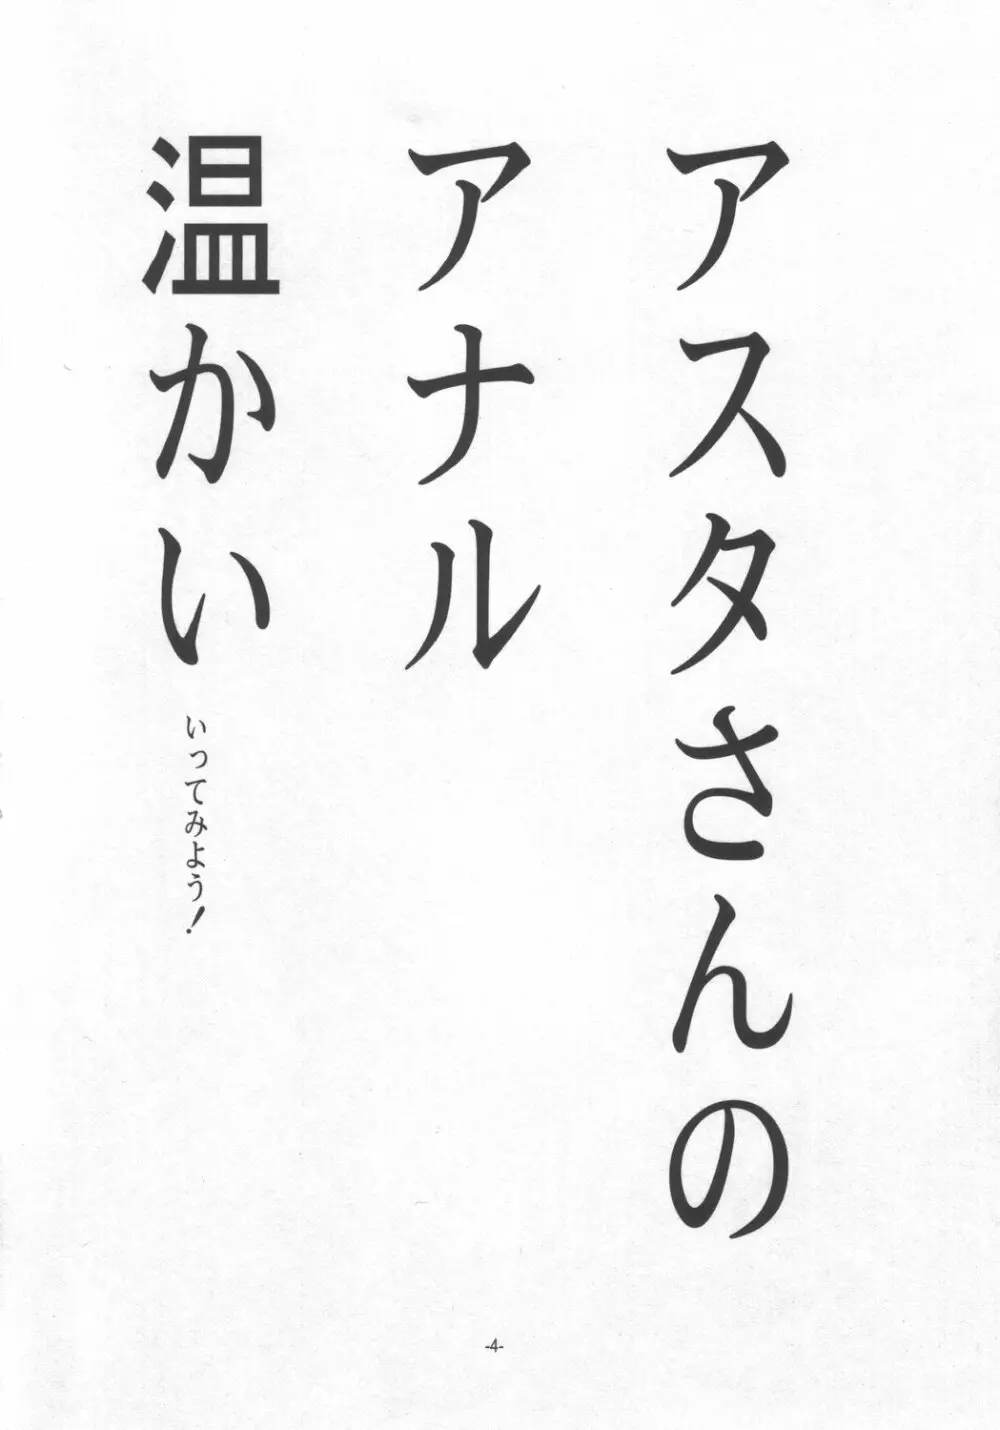 アスタさんの
アナル
温かい
いってみよう!
-4-